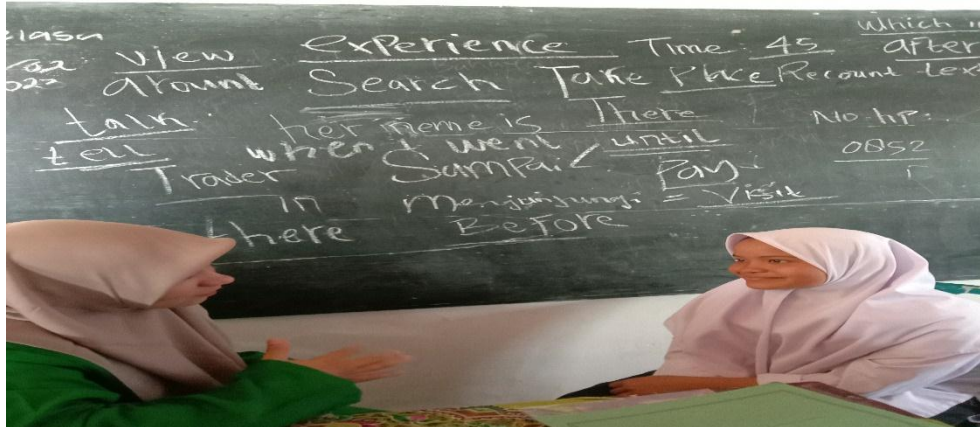 which
view experience Time: 45 after
arount Search Take Place Recount tex
talk her neme is There No hp:
tell when I went until 0852
Trader Sampai Pay
in Menjunjungi = Visit
there Before